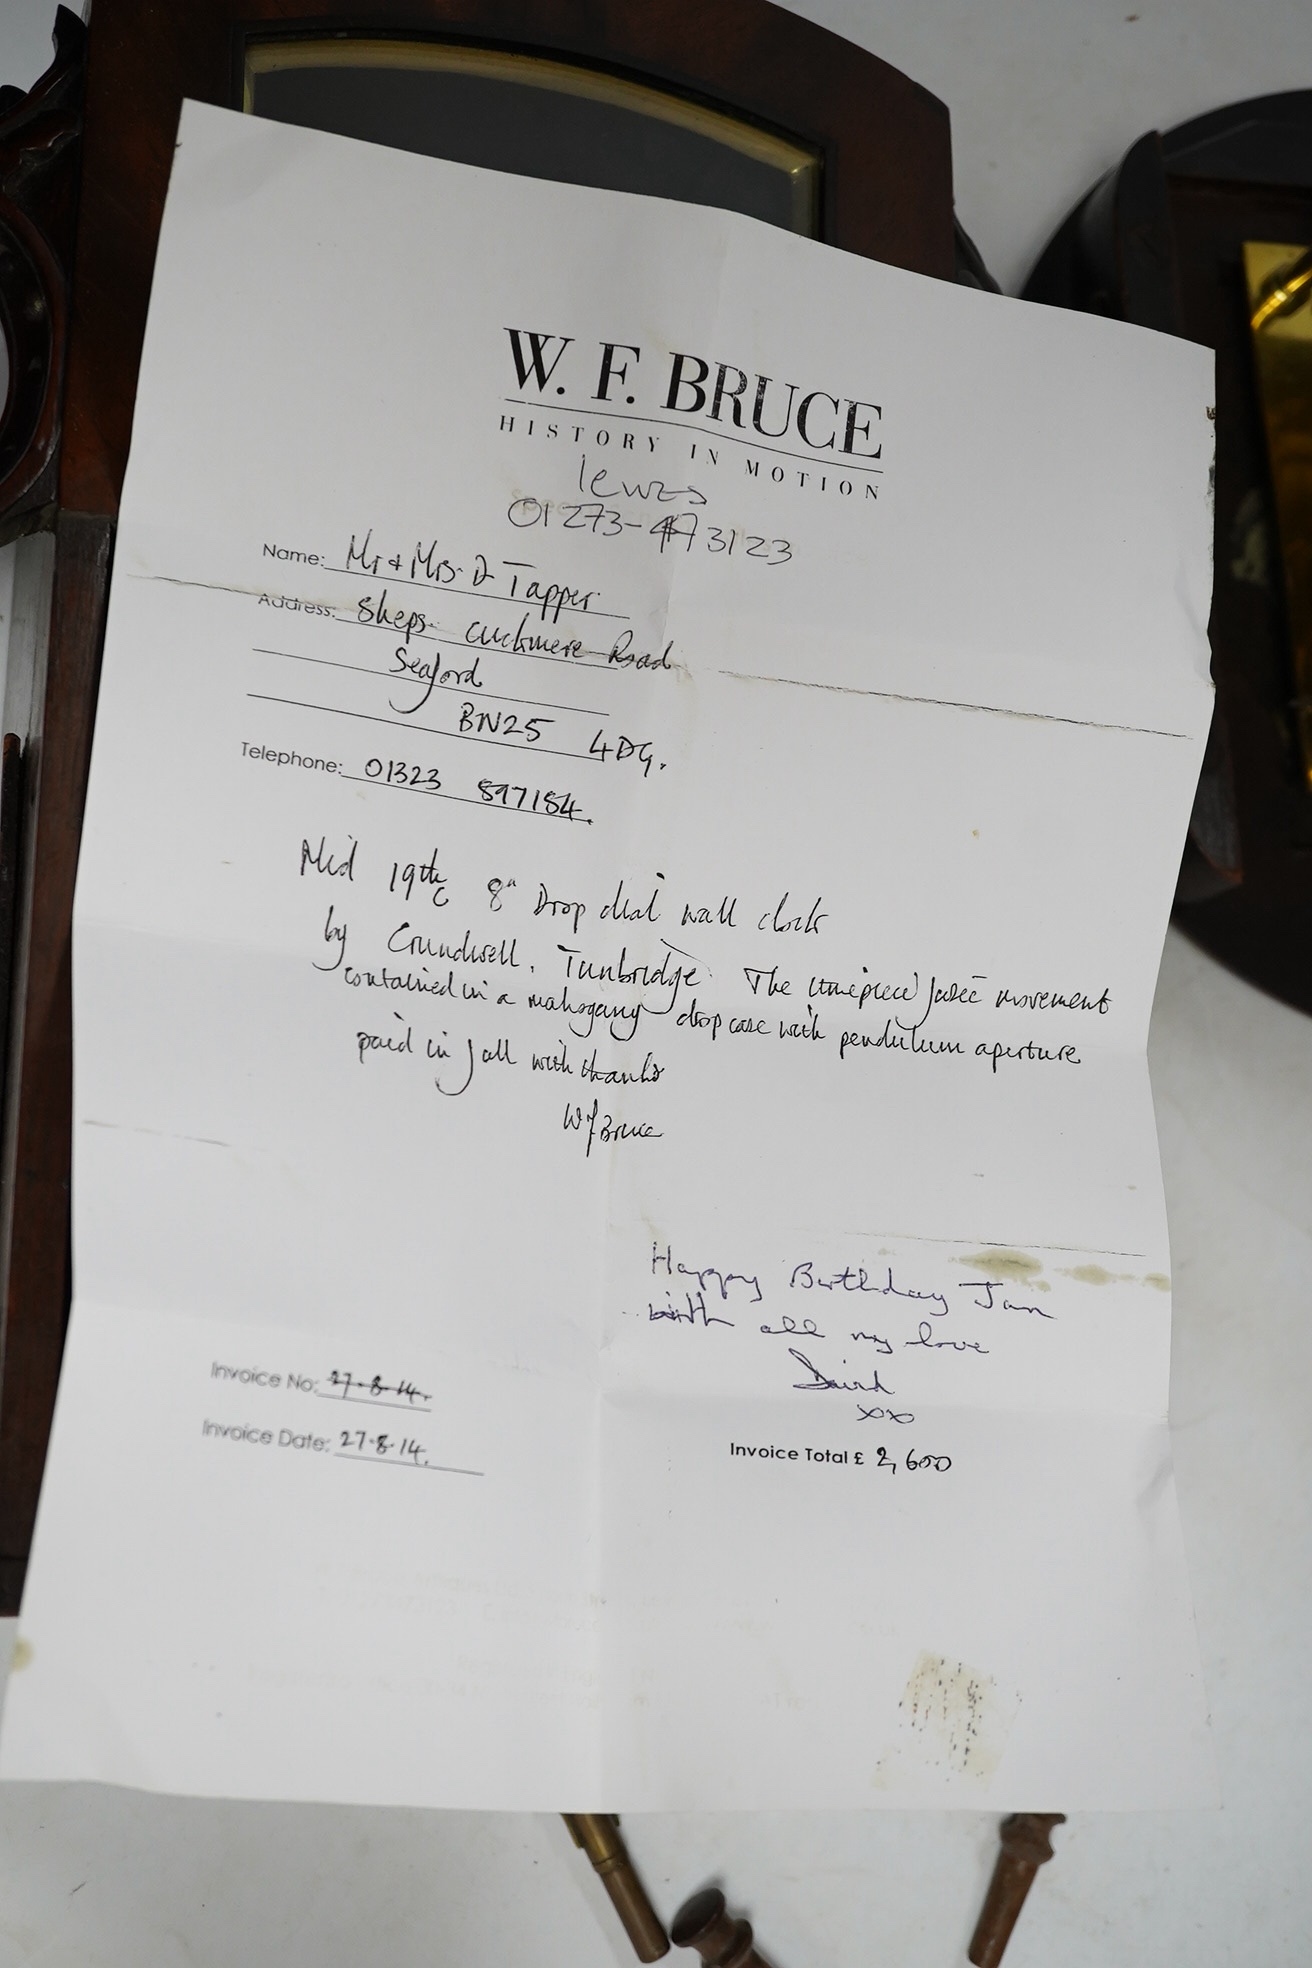 W. F. BRUCE
HISTORY IN MOTION
lewes
01273-473123
Name: Mr & Mrs. D Tapper
Address: Sheps. Cuckmere Road
Seaford
BN25 4DG.
Telephone: 01323 897184.
Mid 19thc 8" Drop dial wall clock
by Crundwell, Tunbridge. The timepiece fusee movement
contained in a mahogany drop case with pendulum aperture
paid in full with thanks
WFBruce
Happy Birthday Jan
with all my love
David
xx
Invoice No: 27.8.14.
Invoice Date: 27.8.14.
Invoice Total £ 2,600